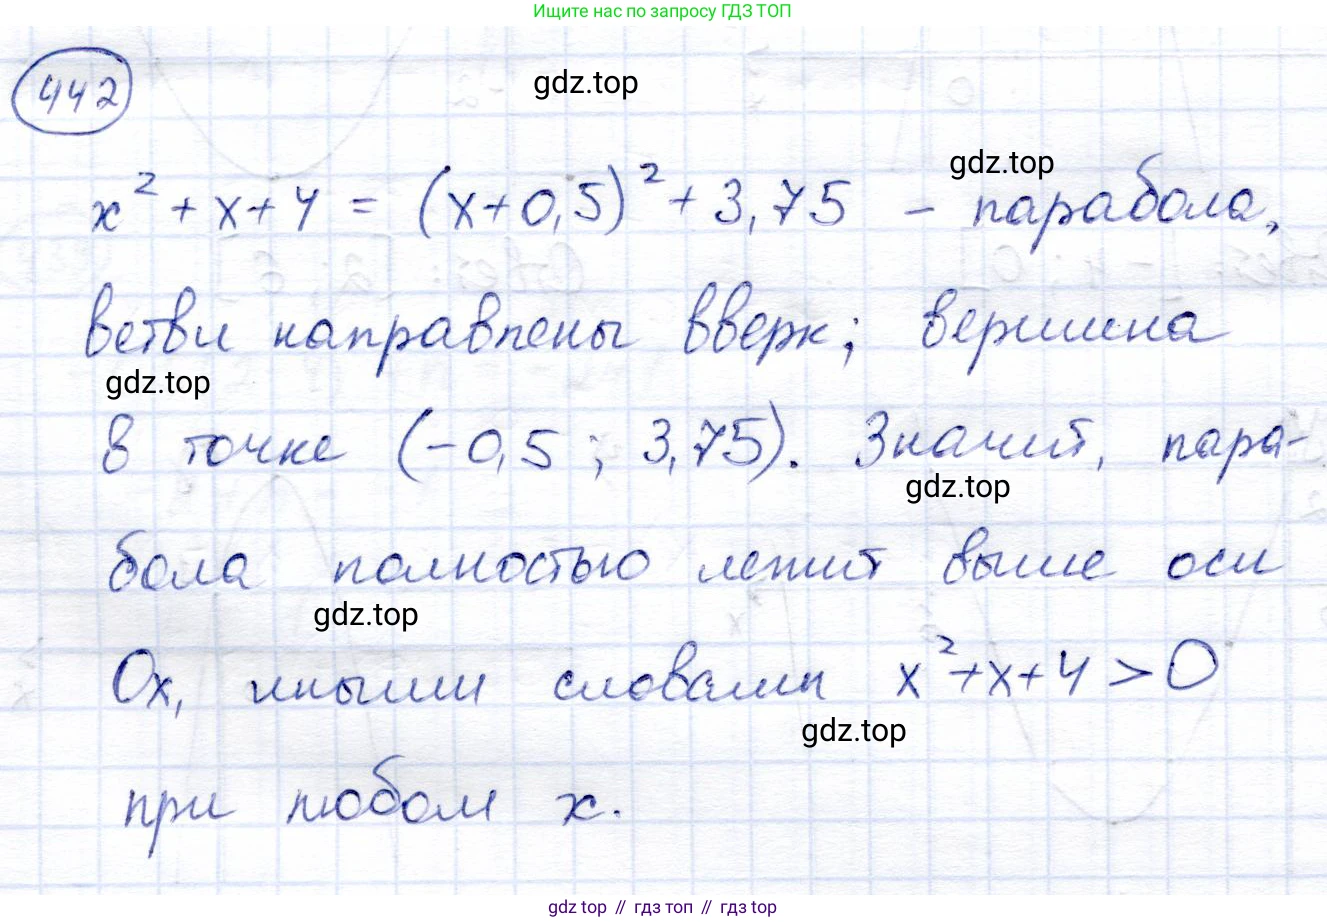 Ищите нас по запросу ГДЗ ТОП
442
gdz.top
gdz.top
x² + x + 4 = (x + 0,5)² + 3,75 – парабола,
ветви направлены вверх; вершина
gdz.top
в точке (-0,5 ; 3,75). Значит, пара-
gdz.top
бола полностью лежит выше оси
gdz.top
Ox, иными словами x² + x + 4 > 0
gdz.top
при любом x.
gdz top // гдз топ // gdz top